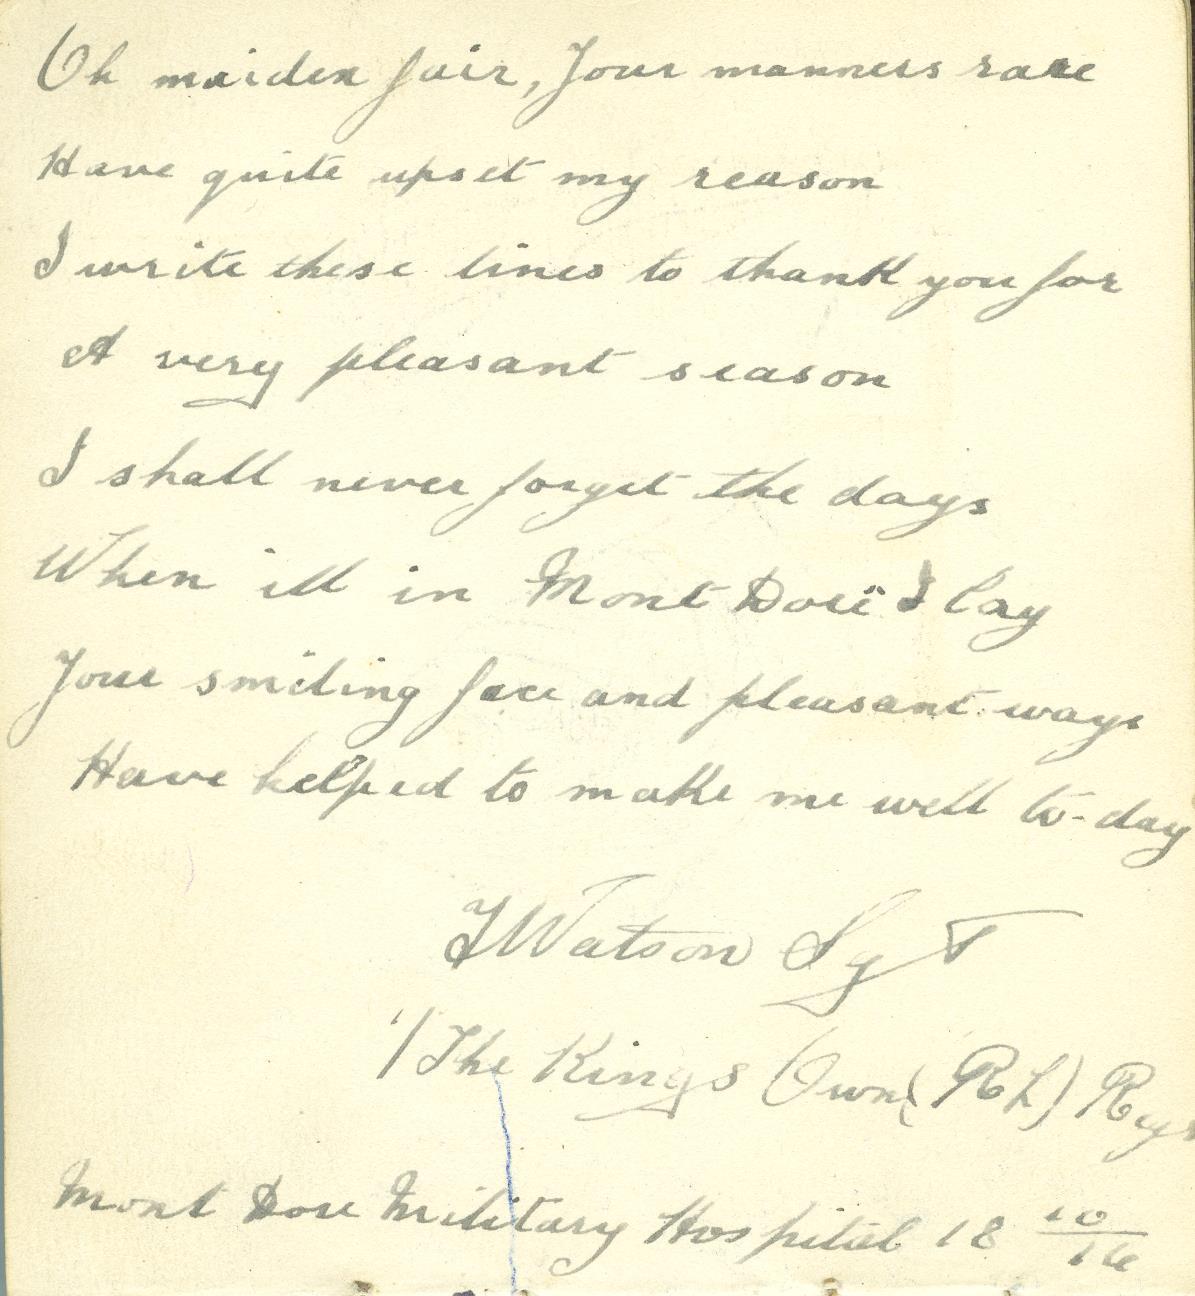 Oh maiden fair, Your manners rare
Have quite upset my reason
I write these lines to thank you for
A very pleasant season
I shall never forget the days
When ill in Mont Doré I lay
Your smiling face and pleasant ways
Have helped to make me well to-day
Watson Sgt
1/The Kings Own (R L) Reg
Mont Dore Military Hospital 18 10/16